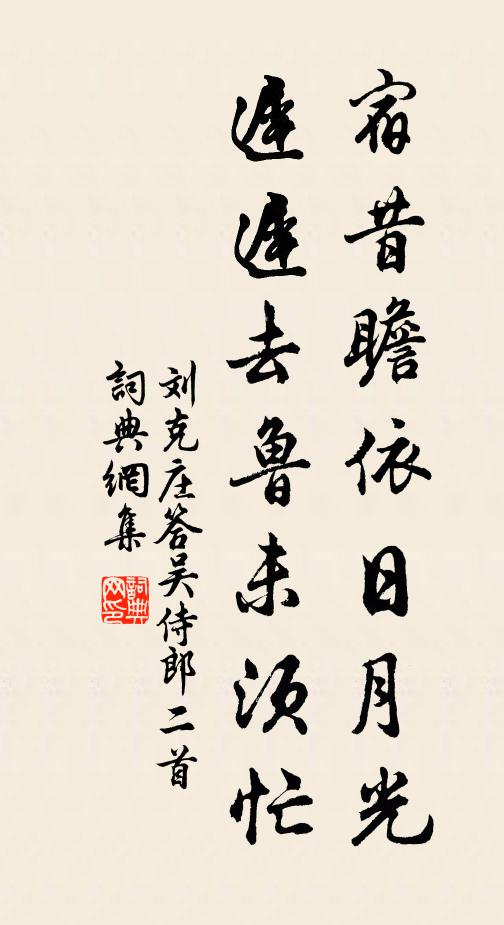 宿昔瞻依日月光
遲遲去魯未須忙
刘克庄答吴侍郎二首
詞典網集
詞典網印